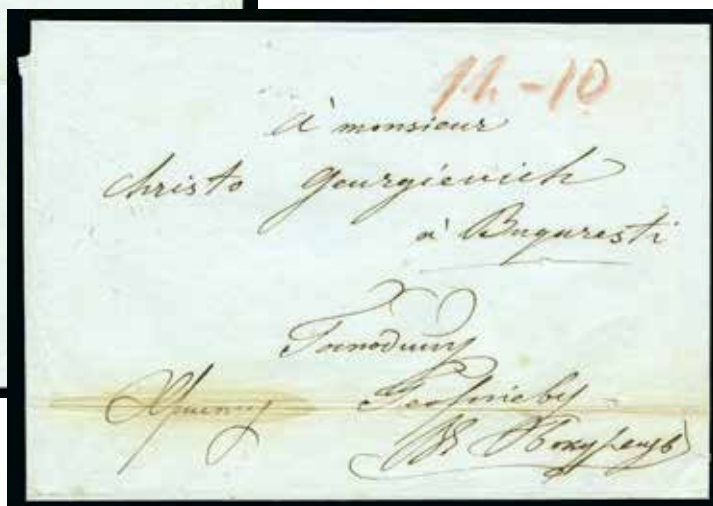 11-10
à monsieur
Christo Gourgievich
à Bugaresti
Господину
Христу Георгіеву